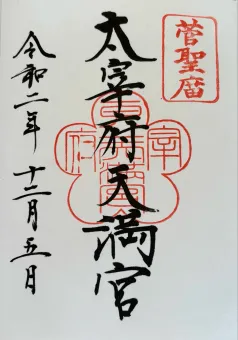 菅聖庿
太宰府天満宮
令和二年 十二月五日